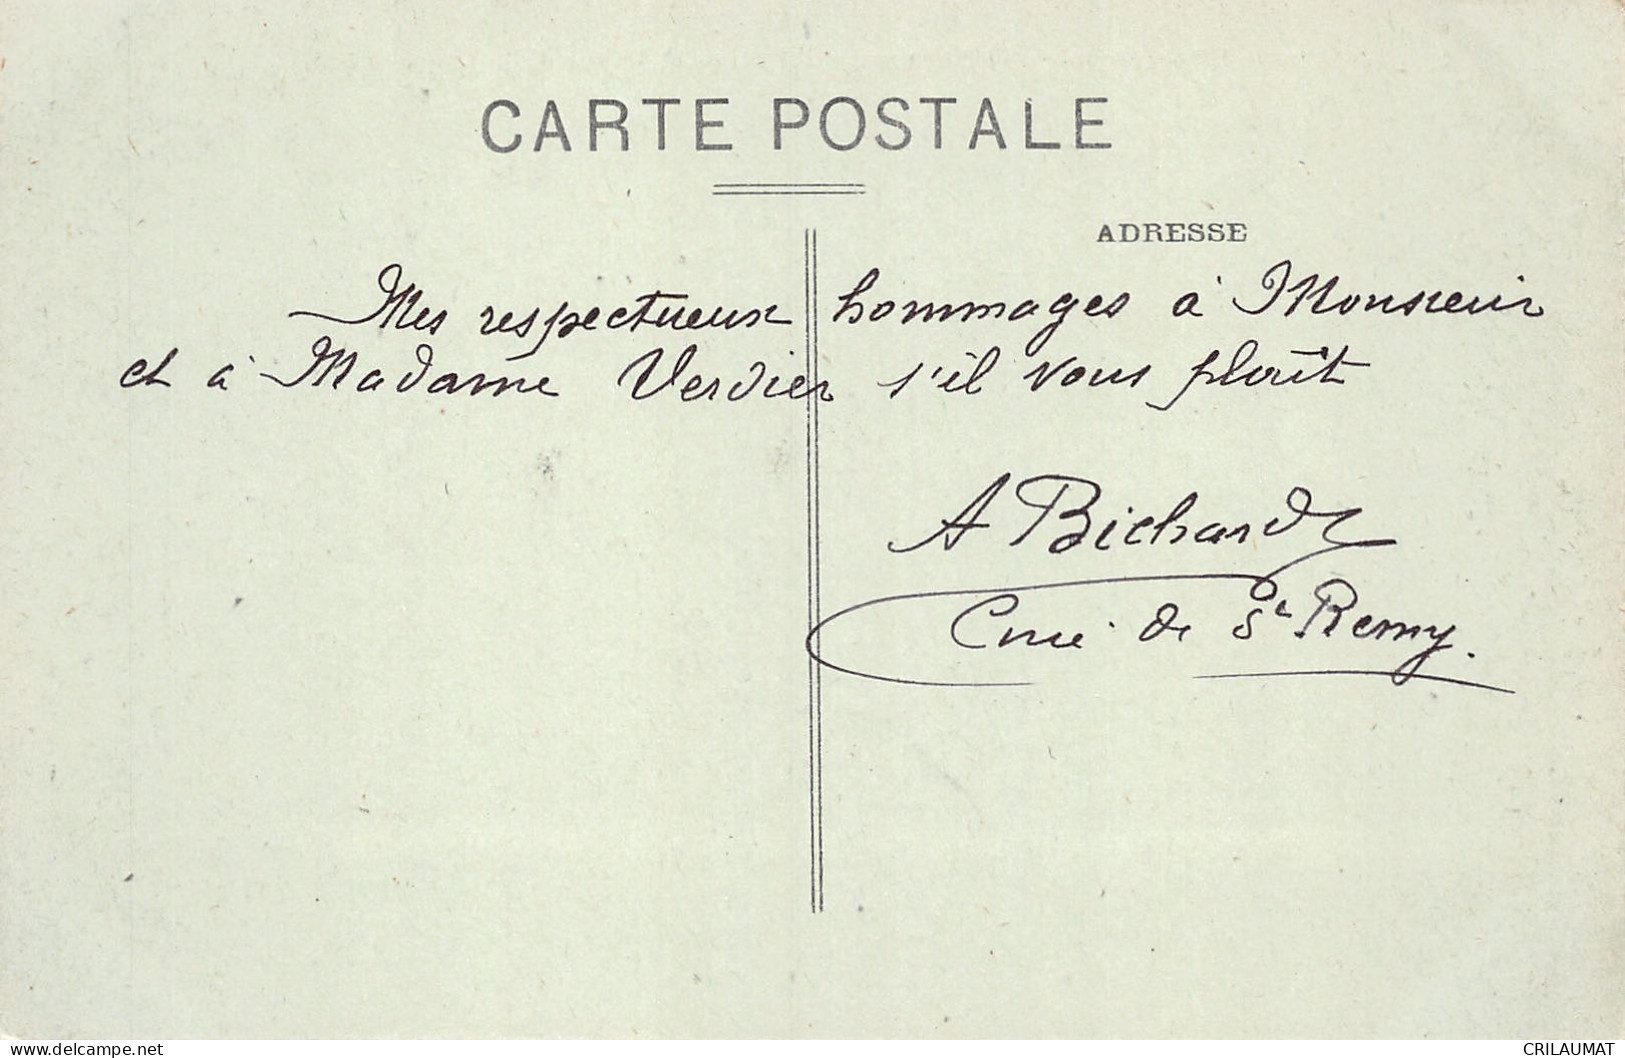 CARTE POSTALE
ADRESSE
Mes respectueux hommages à Monsieur
et à Madame Verdier s'il vous plaît
A Bichard
Curé de St Remy.
delcampe.net
CRILAUMAT